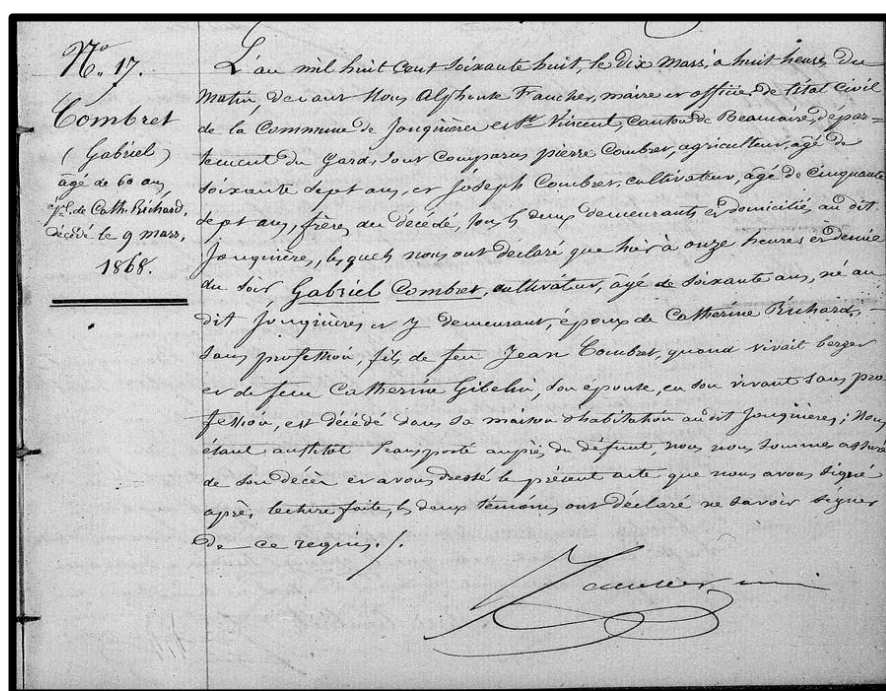 No. 17.
Combret
(Gabriel)
âgé de 60 ans,
ép. de Cath. Richard,
décédé le 9 mars,
1868.
L'an mil huit cent soixante huit, le dix mars, à huit heures du
matin, devant nous Alphonse Faucher, maire et officier de l'état civil
de la Commune de Jonquières et St. Vincent, canton de Beaucaire, dépar=
tement du Gard, sont comparus pierre Combret, agriculteur, âgé de
soixante sept ans, et Joseph Combret, cultivateur, âgé de cinquante
sept ans, frères du décédé, tous les deux demeurants et domiciliés au dit
Jonquières, lesquels nous ont déclaré que hier à onze heures et demie
du soir Gabriel Combret, cultivateur, âgé de soixante ans, né au
dit Jonquières et y demeurant, époux de Catherine Richard,
sans profession, fils de feu Jean Combret, quand vivait berger
et de feue Catherine Gibelin, son épouse, en son vivant sans pro
fession, est décédé dans sa maison d'habitation au dit Jonquières; Nous
étant aussitôt transporté auprès du défunt, nous nous sommes assuré
de son décès et avons dressé le présent acte que nous avons signé
après lecture faite, les deux témoins ont déclaré ne savoir signer
de ce requis./.